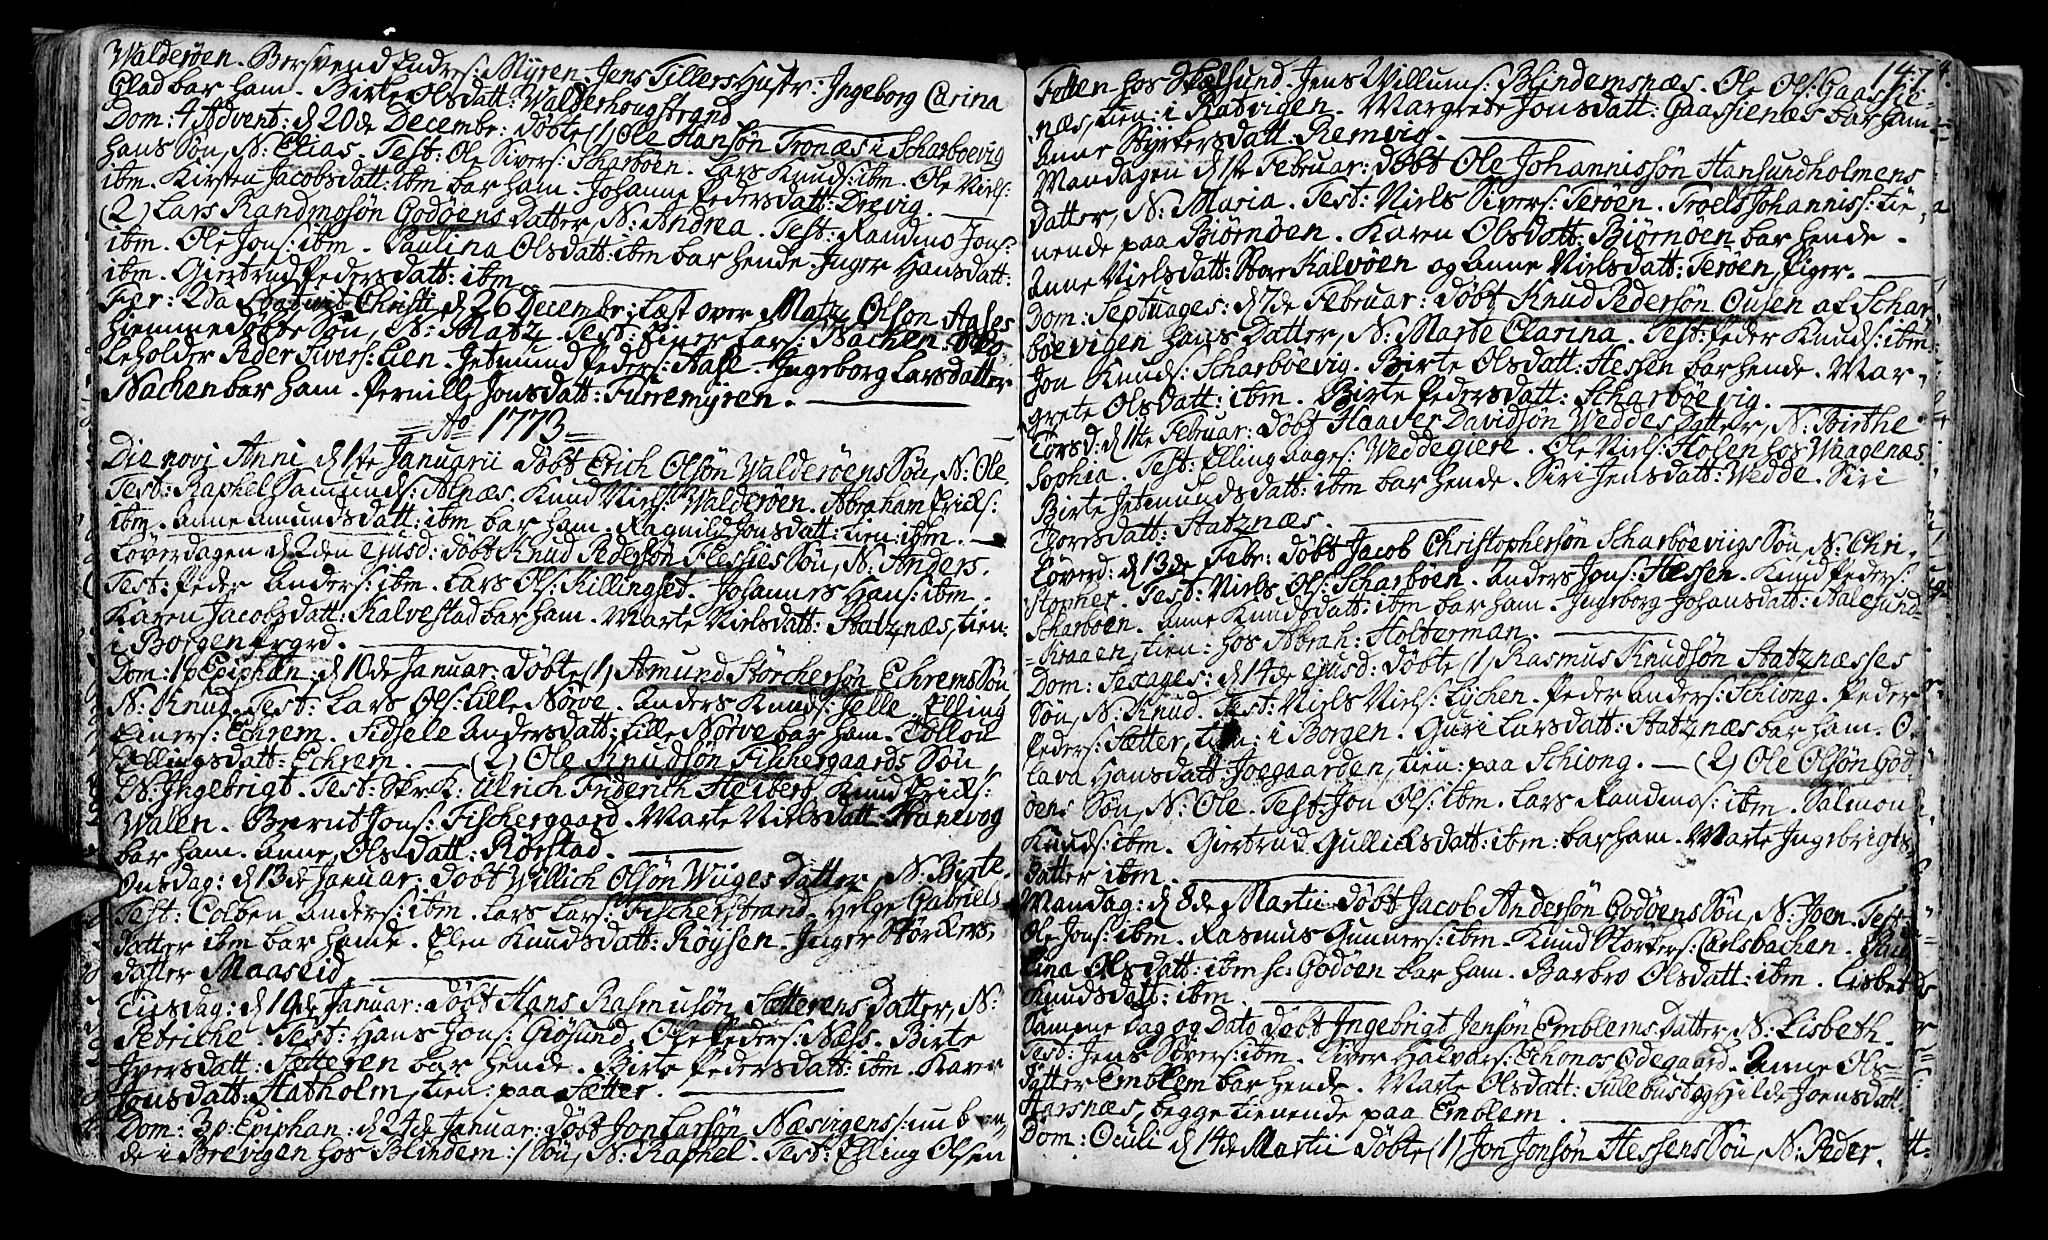 Walderøen. Bersvend Endres: Myren. Jens Tillers Hustr: Ingeborg Carina
Glad bar ham. Birte Olsdatt: Walderhougstrand
Dom: 4 Advent: d 20de Decembr: døbte (1) Ole Hansøn Tronæs i Scharboevig
hans Søn, N: Elias. Test: Ole Sivers: Scharbøen. Lars Knuds: ibm. Ole Niels:
ibm. Kirsten Jacobsdatt: ibm bar ham. Johanne Pedersdatt: Brevig.
(2) Lars Randmosøn Godøens Datter, N: Andrea. Test: Randmo Jons:
ibm. Ole Jons: ibm. Paulina Olsdatt: ibm bar hende. Inger Hansdatt:
ibm. Giertrud Pedersdatt: ibm
Fer: 2da Christi d 26 Decembr: læst over Matz Olsøn Aases
hiemmedøbte Søn, N: Matz. Test: Einer Lars: Nachen.
leholder Peder Ivers: Lien. Jetmund Peders: Aase. Ingeborg Larsdatter
Nachen bar ham. Pernille Jonsdatt: Furremyren.
= Ao 1773 =
Die novi Anni d 1ste Januarii døbt Erich Olsøn Walderøens Søn, N: Ole.
Test: Raphel Samunds: Alnæs. Knud Niels: Walderøen. Abraham Ericks:
ibm. Anne Amundsdatt: ibm bar ham. Ragnild Jonsdatt: tien: ibm.
Løverdagen d 2den ejusd: døbt Knud Pedersøn Flessies Søn, N: Anders.
Test: Peder Anders: ibm. Lars Ols: Killingset. Johannes Hans: ibm.
Karen Jacobsdatt: Kalvestad bar ham. Marte Nielsdatt: Statznæs, tien:
i Borgen Prgrd.
Dom: 1 p Epiphan: d 10de Januar: døbte (1) Amund Storchersøn Echrems Søn
N: Knud. Test: Lars Ols: Lille Nørve. Anders Knuds: Jelle. Elling
Einers: Echrem. Sidsele Andersdatt: Lille Nørve bar ham.
Ellingsdatt: Echrem. — (2) Ole Knudsøn Fischergaards Søn
N: Ingebrigt. Test: Skr: K: Ulrich Friderich Heiberg, Knud Ericks:
Walen. Berent Jons: Fischergaard. Marte Nielsdatt: Hanevog
bar ham. Anne Olsdatt: Rørstad.
Onsdag: d 13de Januar: døbt Willich Olsøn Wiiges Datter, N: Birte.
Test: Colben Anders: ibm. Lars Lars: Fischerstrand. Helge Gabriels
datter ibm bar hende. Elen Knudsdatt: Røysen. Inger Storkers
datter Maaseid
Tiisdag: d 19de Januar: døbt Hans Rasmusøn Sætterens Datter, N:
Petriche. Test: Hans Jons: Giøsund. Ole Peders: Næss. Birte
Iversdatt: Sætteren bar hende. Birte Pedersdatt: ibm. Karen
Jonsdatt: Hatholm, tien: paa Sætter.
Dom: 3 p: Epiphan: d 24de Januar: døbt Jon Larsøn Næsvigens /: nu boen
de i Brevigen hos Blindem :/ Søn, N: Raphel. Test: Elling Olsen
147
Totten hos Skolsund. Jens Willums: Blindemsnæs. Ole Ols: Gaassie-
næs, tien: i Ratvigen. Margrete Jonsdatt: Gaassienæs bar ham
Anne Styrkersdatt: Remvig.
Mandagen d 1ste Februar: døbt Ole Johannissøn Hansundholmens
Datter, N: Maria. Test: Niels Sivers: Terøen. Troels Johanniss: tie-
nende paa Biørnøen. Karen Olsdatt: Biørnøen bar hende.
Anne Nielsdatt: Store Kalvøen og Anne Nielsdatt: Terøen, Piger.
Dom: Septuages: d 7de Februar: døbt Knud Pedersøn Ousen af Schar
bøevigen hans Datter, N: Marte Clarina. Test: Peder Knuds: ibm.
Jon Knuds: Scharbøevig. Birte Olsdatt: Hessen bar hende. Mar-
grete Olsdatt: ibm. Birte Pedersdatt: Scharbøevig.
Torsd: d 11te Februar: døbt Haaver Davidsøn Weddes Datter, N: Birthe
Sophia. Test: Elling Aages: Weddegiere. Ole Niels: Holen hos Waagenæs.
Birte Jetmundsdatt: ibm bar hende. Siri Jensdatt: Wedde. Siri
Thorsdatt: Statznæs.
Løverd: d 13de Febr: døbt Jacob Christophersøn Scharbøeviigs Søn, N: Chri-
stopher. Test: Niels Ols: Scharbøen. Anders Jons: Hessen. Knud Peders:
Scharbøen. Anne Knudsdatt: ibm bar ham. Ingeborg Johansdatt: Aalesund-
Kraaen, tien: hos Abrah: Holterman.
Dom: Sexages: d 14de ejusd: døbte (1) Rasmus Knudsøn Statznæsses
Søn, N: Knud. Test: Niels Niels: Lychen. Peder Anders: Schiong. Peder
Peders: Sætter, tien: i Borgen. Guri Larsdatt: Statznæs bar ham. O-
lava Hansdatt: Joegaarden, tien: paa Schiong. — (2) Ole Olsøn God-
øens Søn, N: Ole. Test: Jon Ols: ibm. Lars Randmos: ibm. Salmon
Knuds: ibm. Giertrud Gullicksdatt: ibm: bar ham. Marte Ingebrigts
datter ibm.
Mandag: d 8de Martii døbt Jacob Andersøn Godøens Søn, N: Joen. Test:
Ole Jons: ibm. Rasmus Gunners: ibm. Knud Storkers: Carlsbachen. Pau-
lina Olsdatt: ibm sc: Godøen bar ham. Barbro Olsdatt: ibm. Lisbet
Knudsdatt: ibm.
Samme Dag og Dato døbt Ingebrigt Jensøn Emblems Datter, N: Lisbeth.
Test: Jens Sivers: ibm. Siver Halvars: Echonos Ødegaard. Anne Ols-
datter Emblem bar hende. Marte Olsdatt: Tillebust og Hilde Joensdatt:
Harsnæs, begge tienende paa Emblem.
Dom: Oculi d 14de Martii døbte (1) Jon Jonsøn Hessens Søn, N: Peder.